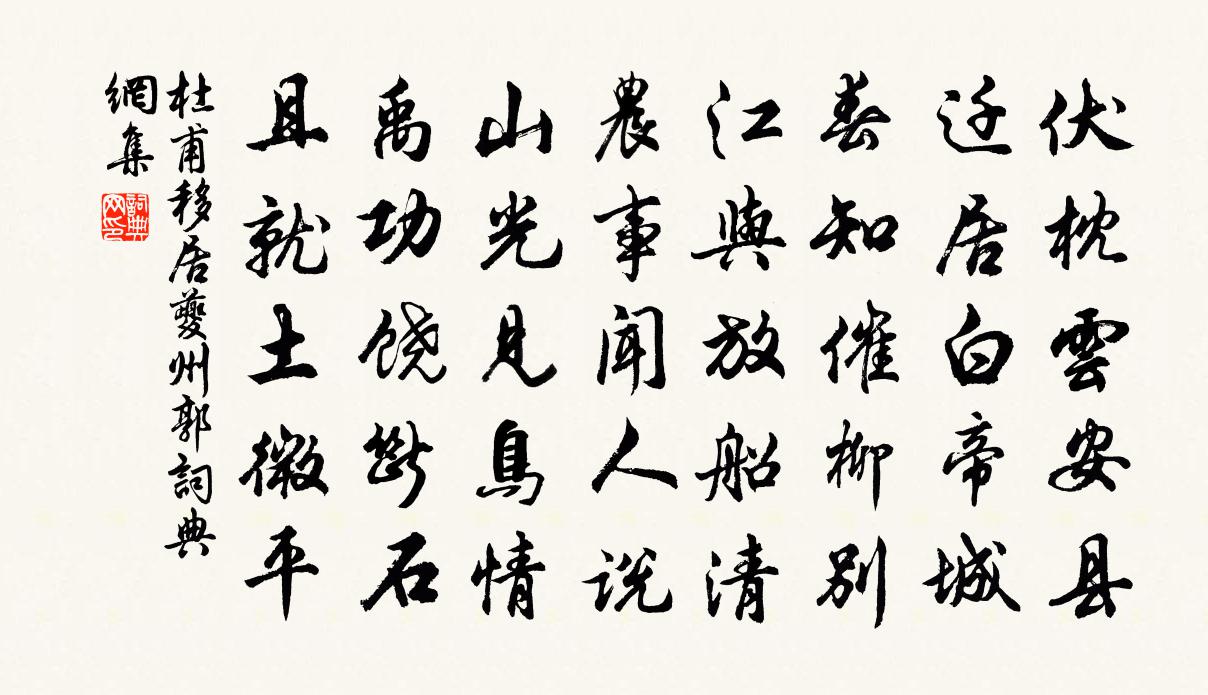 伏枕雲安县
迁居白帝城
春知催柳别
江與放船清
農事闻人说
山光見鳥情
禹功饶斷石
且就土微平
杜甫移居夔州郭詞典
網集
詞典
网印